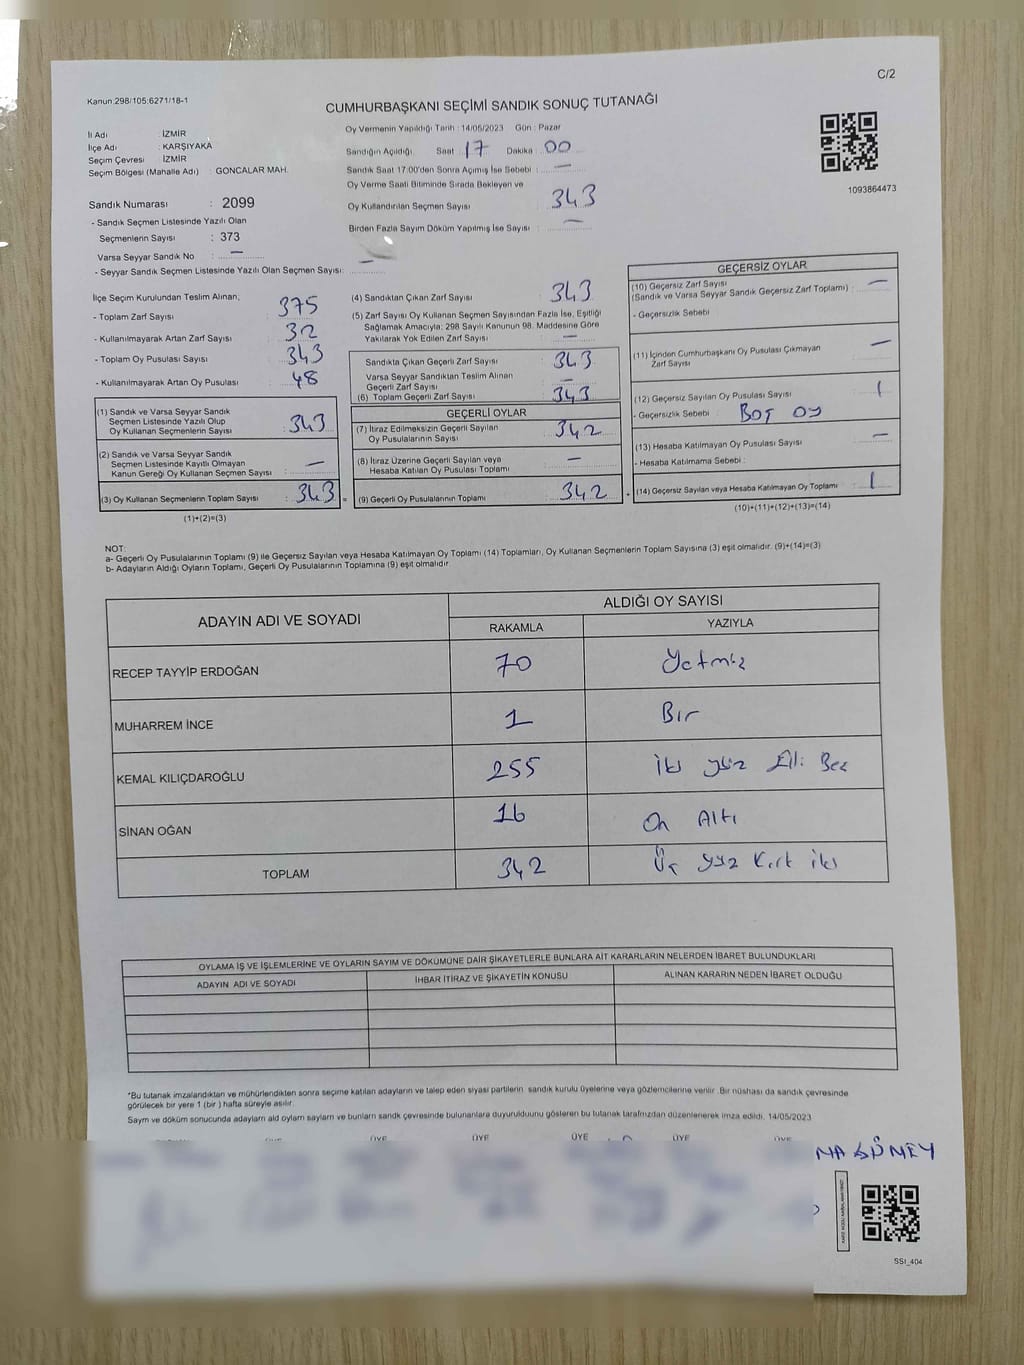 C/2
Kanun:298/105:6271/18-1
CUMHURBAŞKANI SEÇİMİ SANDIK SONUÇ TUTANAĞI
İl Adı : İZMİR
İlçe Adı : KARŞIYAKA
Seçim Çevresi : İZMİR
Seçim Bölgesi (Mahalle Adı) : GONCALAR MAH.
Sandık Numarası : 2099
- Sandık Seçmen Listesinde Yazılı Olan
Seçmenlerin Sayısı : 373
Varsa Seyyar Sandık No : —
- Seyyar Sandık Seçmen Listesinde Yazılı Olan Seçmen Sayısı: —
Oy Vermenin Yapıldığı Tarih : 14/05/2023 Gün : Pazar
Sandığın Açıldığı Saat 17 Dakika : 00
Sandık Saat 17:00'den Sonra Açımış İse Sebebi : —
Oy Verme Saati Bitiminde Sırada Bekleyen ve
Oy Kullandırılan Seçmen Sayısı 343
Birden Fazla Sayım Döküm Yapılmış İse Sayısı : —
1093864473
İlçe Seçim Kurulundan Teslim Alınan;
- Toplam Zarf Sayısı : 375
- Kullanılmayarak Artan Zarf Sayısı : 32
- Toplam Oy Pusulası Sayısı : 343
- Kullanılmayarak Artan Oy Pusulası : 48
(1) Sandık ve Varsa Seyyar Sandık
Seçmen Listesinde Yazılı Olup
Oy Kullanan Seçmenlerin Sayısı : 343
(2) Sandık ve Varsa Seyyar Sandık
Seçmen Listesinde Kayıtlı Olmayan
Kanun Gereği Oy Kullanan Seçmen Sayısı : —
(3) Oy Kullanan Seçmenlerin Toplam Sayısı : 343 =
(1)+(2)=(3)
(4) Sandıktan Çıkan Zarf Sayısı : 343
(5) Zarf Sayısı Oy Kullanan Seçmen Sayısından Fazla İse, Eşitliği
Sağlamak Amacıyla; 298 Sayılı Kanunun 98. Maddesine Göre
Yakılarak Yok Edilen Zarf Sayısı : —
Sandıkta Çıkan Geçerli Zarf Sayısı : 343
Varsa Seyyar Sandıktan Teslim Alınan
Geçerli Zarf Sayısı : —
(6) Toplam Geçerli Zarf Sayısı : 343
GEÇERLİ OYLAR
(7) İtiraz Edilmeksizin Geçerli Sayılan
Oy Pusulalarının Sayısı : 342
(8) İtiraz Üzerine Geçerli Sayılan veya
Hesaba Katılan Oy Pusulası Toplamı : —
(9) Geçerli Oy Pusulalarının Toplamı : 342 +
GEÇERSİZ OYLAR
(10) Geçersiz Zarf Sayısı
(Sandık ve Varsa Seyyar Sandık Geçersiz Zarf Toplamı) : —
- Geçersizlik Sebebi :
(11) İçinden Cumhurbaşkanı Oy Pusulası Çıkmayan
Zarf Sayısı : —
(12) Geçersiz Sayılan Oy Pusulası Sayısı : 1
- Geçersizlik Sebebi : BOŞ OY
(13) Hesaba Katılmayan Oy Pusulası Sayısı : —
- Hesaba Katılmama Sebebi :
(14) Geçersiz Sayılan veya Hesaba Katılmayan Oy Toplamı : 1
(10)+(11)+(12)+(13)=(14)
NOT:
a- Geçerli Oy Pusulalarının Toplamı (9) ile Geçersiz Sayılan veya Hesaba Katılmayan Oy Toplamı (14) Toplamları, Oy Kullanan Seçmenlerin Toplam Sayısına (3) eşit olmalıdır. (9)+(14)=(3)
b- Adayların Aldığı Oyların Toplamı, Geçerli Oy Pusulalarının Toplamına (9) eşit olmalıdır
ADAYIN ADI VE SOYADI ALDIĞI OY SAYISI
RAKAMLA YAZIYLA
RECEP TAYYİP ERDOĞAN 70 Yetmiş
MUHARREM İNCE 1 Bir
KEMAL KILIÇDAROĞLU 255 İki yüz Elli Beş
SİNAN OĞAN 16 On Altı
TOPLAM 342 Üç yüz Kırk İki
OYLAMA İŞ VE İŞLEMLERİNE VE OYLARIN SAYIM VE DÖKÜMÜNE DAİR ŞİKAYETLERLE BUNLARA AİT KARARLARIN NELERDEN İBARET BULUNDUKLARI
ADAYIN ADI VE SOYADI İHBAR İTİRAZ VE ŞİKAYETİN KONUSU ALINAN KARARIN NEDEN İBARET OLDUĞU
*Bu tutanak imzalandıktan ve mühürlendikten sonra seçime katılan adayların ve talep eden siyasi partilerin sandık kurulu üyelerine veya gözlemcilerine verilir. Bir nüshası da sandık çevresinde
görülecek bir yere 1 (bir ) hafta süreyle asılır.
Sayım ve döküm sonucunda adayların ald oyların sayların ve bunların sandk çevresinde bulunanlara duyurulduunu gösteren bu tutanak tarafmzdan düzenlenerek imza edildi. 14/05/2023
ÜYE ÜYE ÜYE ÜYE
SSI_404